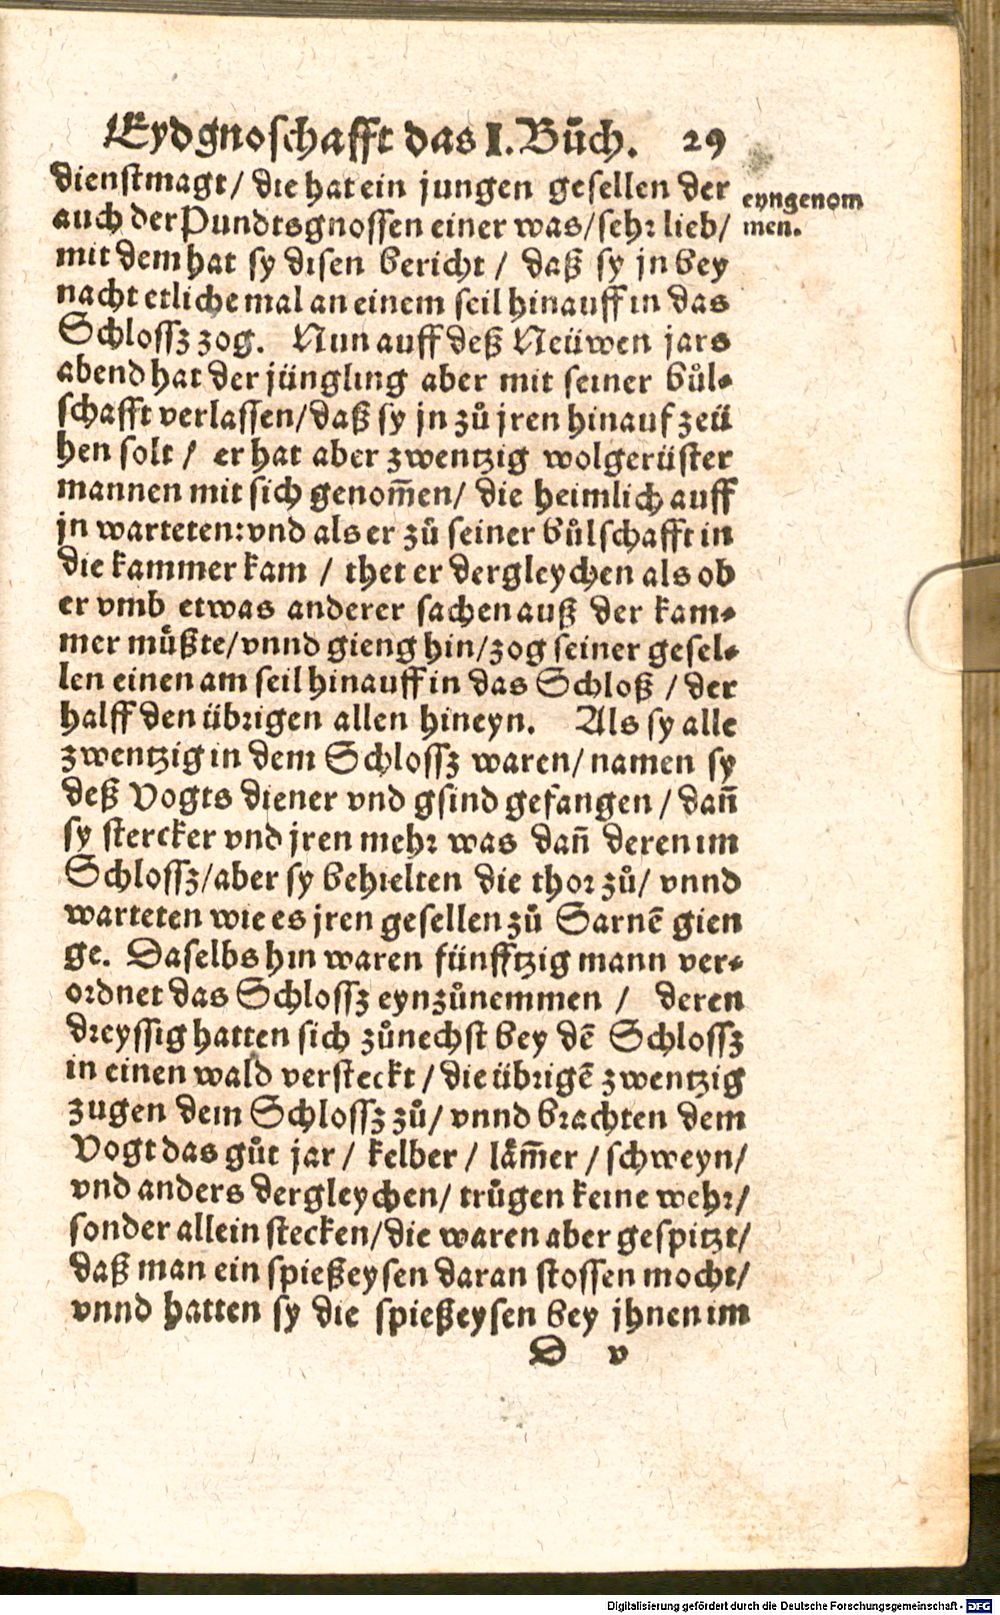 Eydgnoschafft das I. Bůch. 29
dienstmagt/ die hat ein jungen gesellen der
auch der Pundtsgnossen einer was/sehr lieb/
mit dem hat sy disen bericht / daß sy jn bey
nacht etliche mal an einem seil hinauff in das
Schlossz zog. Nun auff deß Neüwen jars
abend hat der jüngling aber mit seiner bůl-
schafft verlassen/daß sy jn zů jren hinauf zeü
hen solt / er hat aber zwentzig wolgerüster
mannen mit sich genom̃en/ die heimlich auff
jn warteten: vnd als er zů seiner bůlschafft in
die kammer kam / thet er dergleychen als ob
er vmb etwas anderer sachen auß der kam-
mer müßte/vnnd gieng hin/zog seiner gesel-
len einen am seil hinauff in das Schloß / der
halff den übrigen allen hineyn. Als sy alle
zwentzig in dem Schlossz waren/ namen sy
deß Vogts diener vnd gsind gefangen / dañ
sy stercker vnd jren mehr was dañ deren im
Schlossz/aber sy behielten die thor zů/ vnnd
warteten wie es jren gesellen zů Sarnẽ gien
ge. Daselbs hin waren fünfftzig mann ver-
ordnet das Schlossz eynzůnemmen / deren
dreyssig hatten sich zůnechst bey dẽ Schlossz
in einen wald versteckt / die übrigẽ zwentzig
zugen dem Schlossz zů/ vnnd brachten dem
Vogt das gůt jar / kelber / läm̃er / schweyn/
vnd anders dergleychen/ trůgen keine wehr/
sonder allein stecken/die waren aber gespitzt/
daß man ein spießeysen daran stossen mocht/
vnnd hatten sy die spießeysen bey jhnen im
D v
eyngenom
men.
Digitalisierung gefördert durch die Deutsche Forschungsgemeinschaft - DFG